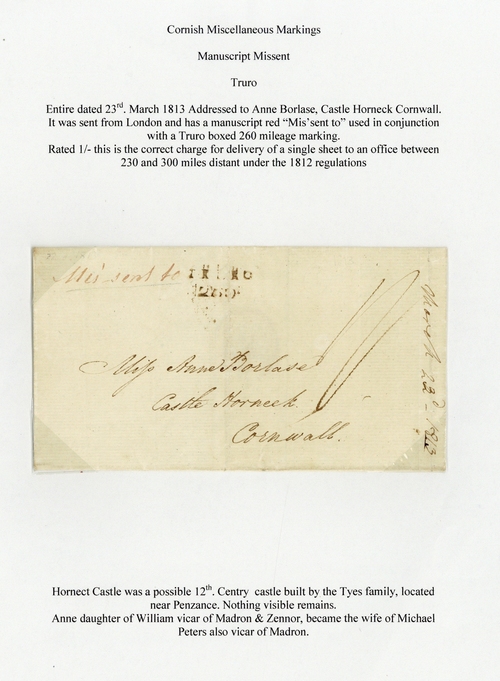 Cornish Miscellaneous Markings
Manuscript Missent
Truro
Entire dated 23rd. March 1813 Addressed to Anne Borlase, Castle Horneck Cornwall.
It was sent from London and has a manuscript red “Mis’sent to” used in conjunction
with a Truro boxed 260 mileage marking.
Rated 1/- this is the correct charge for delivery of a single sheet to an office between
230 and 300 miles distant under the 1812 regulations
Mis'sent to TRURO
260
Miss Anne Borlase
Castle Horneck
Cornwall.
March 23d - 1813
Hornect Castle was a possible 12th. Centry castle built by the Tyes family, located
near Penzance. Nothing visible remains.
Anne daughter of William vicar of Madron & Zennor, became the wife of Michael
Peters also vicar of Madron.